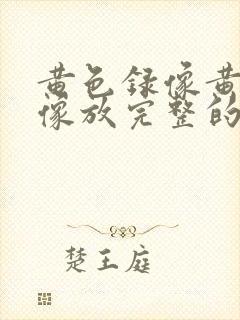 黄色録像黄
像放完整的
楚王庭